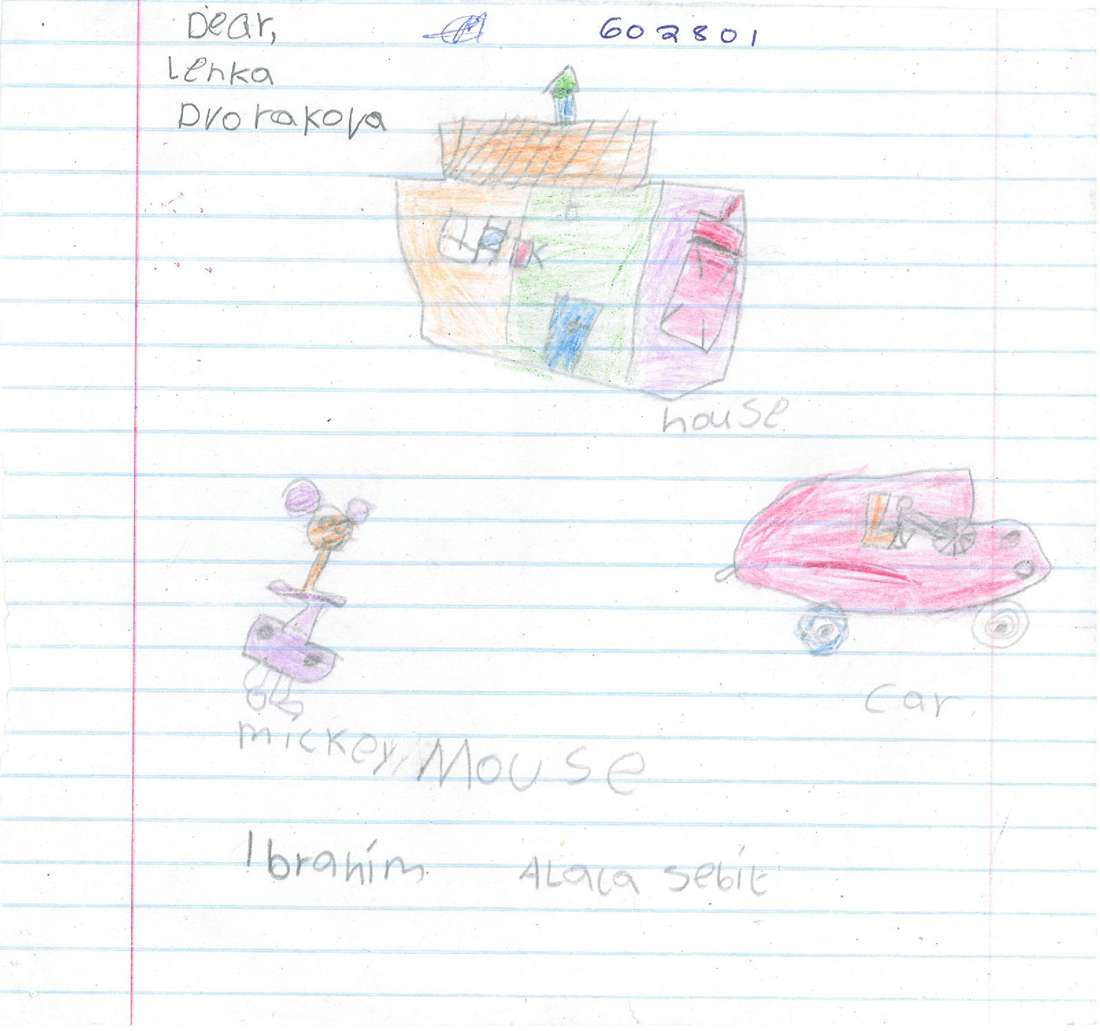 Dear, 602801
Lenka
Dvorakova
house
car
mickey Mouse
Ibrahim Alaca sebit